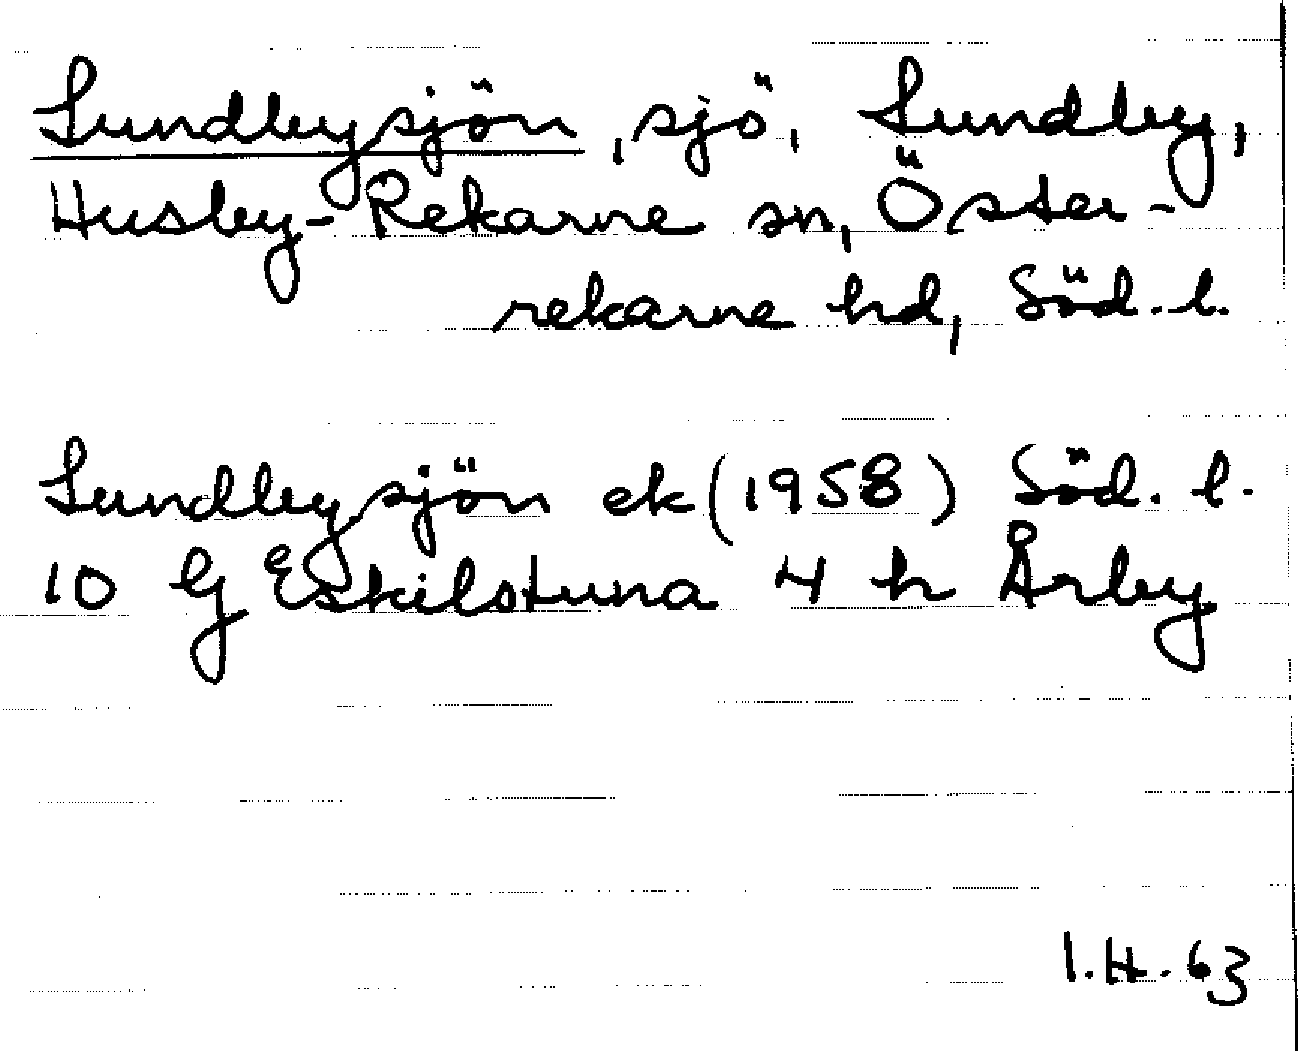 Sundbysjön, sjö, Sundby,
Husby-Rekarne sn, Öster-
rekarne hd, Söd. l.
Sundbysjön ek (1958) Söd. l.
10 G Eskilstuna 4 h Årby
I.H. 63